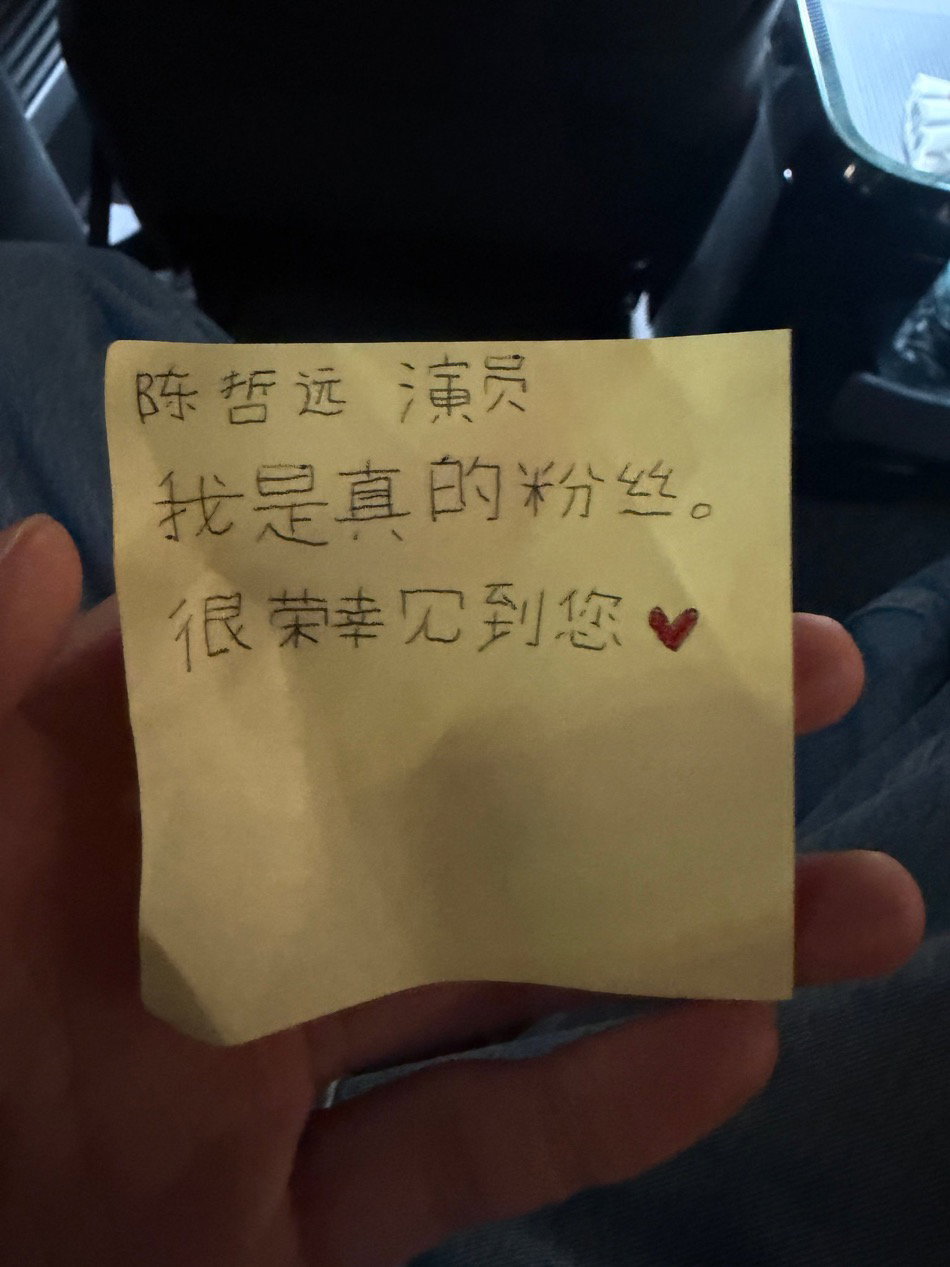 陈哲远 演员
我是真的粉丝。
很荣幸见到您♥